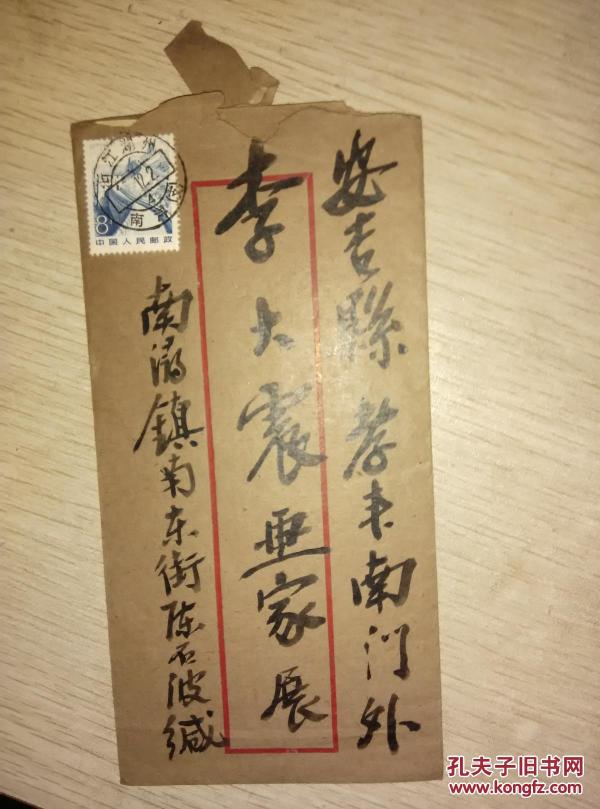 安吉縣孝丰南门外
李大震畫家展
南潯鎮南东街陈石波缄
浙江湖州
12.2
南
8
中国人民邮政
孔夫子旧书网
www.kongfz.com